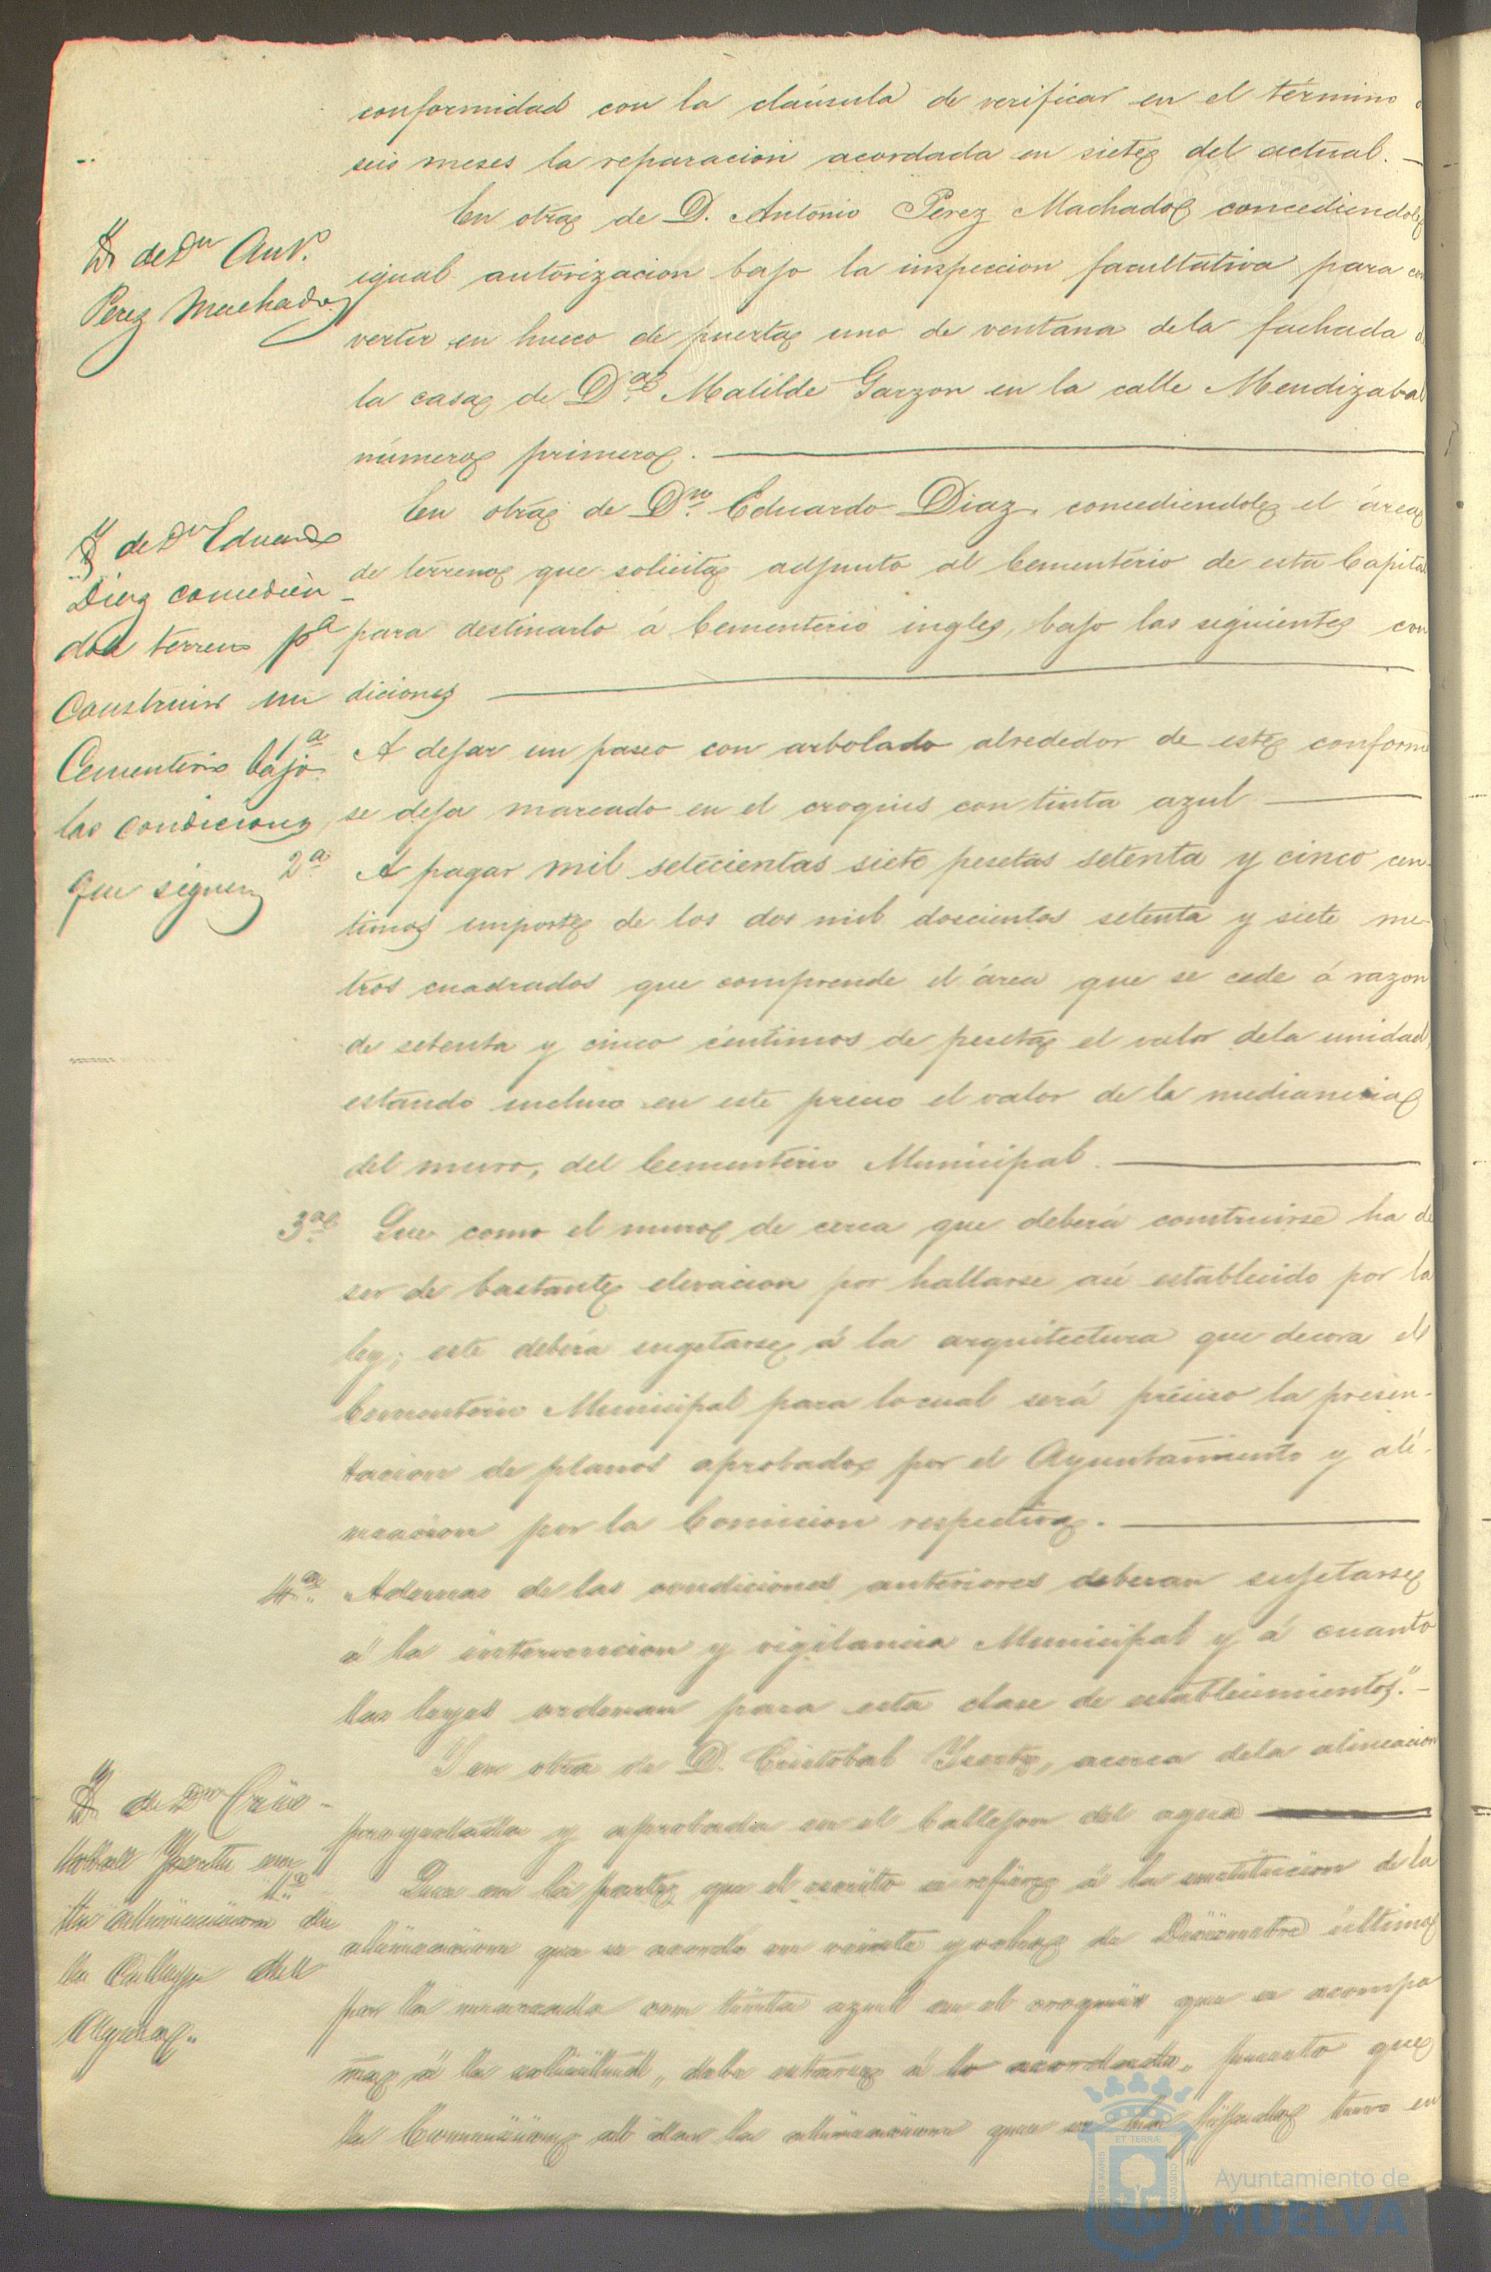 conformidad con la claúsula de verificar en el término
seis meses la reparacion acordada en siete del actual. —
En otra de D. Antonio Perez Machado concediendole
igual autorizacion bajo la inspeccion facultativa para con
verter en hueco de puerta uno de ventana dela fachada
la casa de D.ª Matilde Garzon en la calle Mendizabal
número primero.
En otra de Dn. Eduardo Diaz, concediendole el área
de terreno que solicita adjunto al Cementerio de esta Capital
para destinarlo á Cementerio ingles, bajo las siguientes con
diciones
1ª A dejar un paseo con arbolado alrededor de este conforme
se deja marcado en el croquis con tinta azul
2ª A pagar mil setecientas siete pesetas setenta y cinco cen-
timos importe de los dos mil doscientos setenta y siete me-
tros cuadrados que comprende el área que se cede á razon
de setenta y cinco céntimos de peseta el valor dela unidad
estando incluso en este precio el valor de la medianeria
del muro, del Cementerio Municipal.
3ª Que como el muro de cerca que deberá construirse ha de
ser de bastante elevacion por hallarse asi establecido por la
ley; este deberá sugetarse á la arquitectura que decora el
Cementerio Municipal para locual será préciso la presen-
tacion de planos aprobados por el Ayuntamiento y ali-
neacion por la Comision respectiva.
4ª Ademas de las condiciones anteriores deberan sujetarse
á la intervencion y vigilancia Municipal y á cuanto
las leyes ordenan para esta clase de establecimientos." —
Y en otra de D. Cristobal Ysert, acerca dela alineacion
proyectada y aprobada en el Callejon del agua
Que en la parte que el escrito se refiere á la sustitucion de la
alineacion que se acordó en veinte y ocho de Diciembre último
por la marcada con tinta azul en el croquis que se acompa
ña á la solicitud, debe estarse á lo acordado, puesto que
la Comision al dar la alineacion que se ha fijado tuvo en
de Dn Ant.º
Perez Machado
de Dn Eduardo
Diaz concedien-
dole terreno pª
construir un
Cementerio bajo
las condiciones
que siguen
de Dn Cris-
tobal Ysert
la alineacion de
la Calleja del
Agua.
ET TERRÆ
Ayuntamiento de
HUELVA